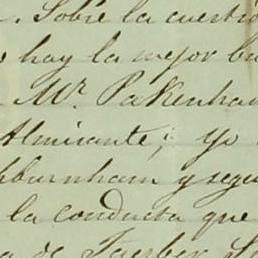 . Sobre la cuesti
hay la mejor bu
Mr. Pakenha
Almirante; Yo
hburnham y segu
la conducta que
de